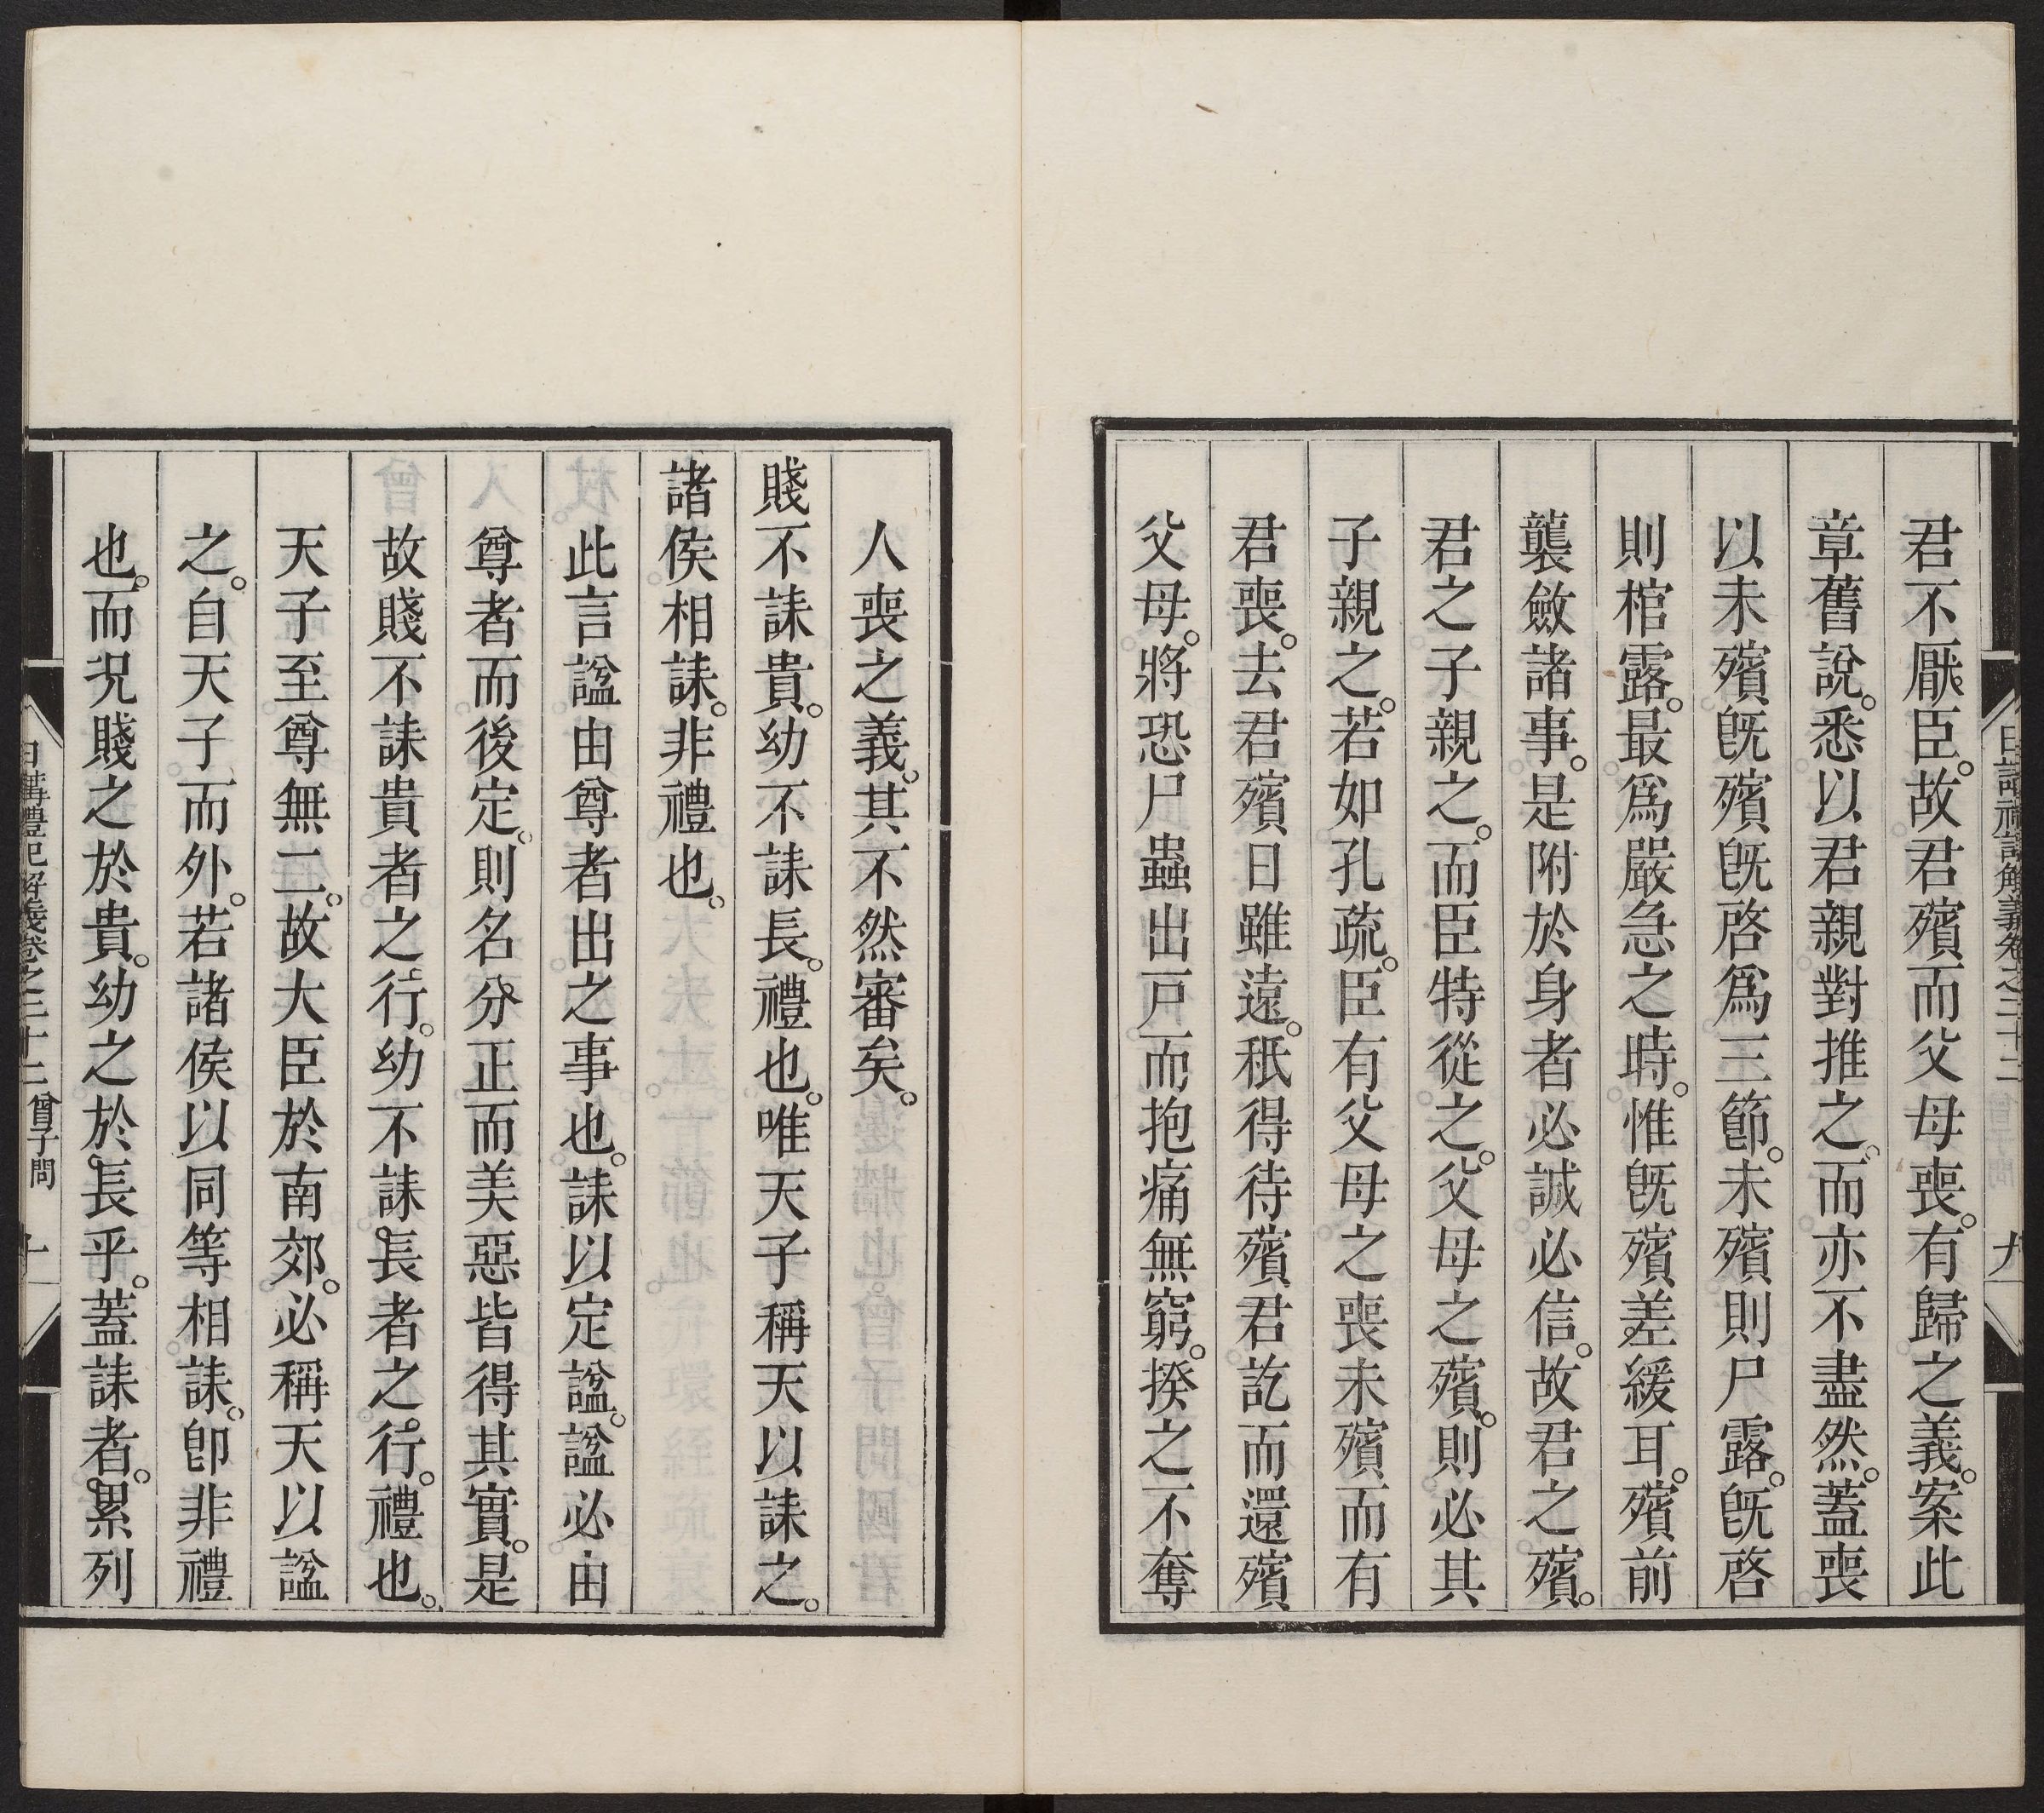 日講禮記解義卷之三十二 曾子問 九
君不厭臣。故君殯而父母喪。有歸之義。案此
章舊說。悉以君親對推之。而亦不盡然。蓋喪
以未殯旣殯旣啓爲三節。未殯則尸露。旣啓
則棺露。最爲嚴急之時。惟旣殯差緩耳。殯前
襲斂諸事。是附於身者必誠必信。故君之殯。
君之子親之。而臣特從之。父母之殯。則必其
子親之。若如孔疏。臣有父母之喪未殯而有
君喪。去君殯日雖遠。秖得待殯君訖而還殯
父母。將恐尸蟲出戸。而抱痛無窮。揆之不奪
人喪之義。其不然審矣。
賤不誄貴。幼不誄長。禮也。唯天子稱天以誄之。
諸侯相誄。非禮也。
此言諡由尊者出之事也。誄以定諡。諡必由
尊者而後定。則名分正而美惡皆得其實。是
故賤不誄貴者之行。幼不誄長者之行。禮也。
天子至尊無二。故大臣於南郊。必稱天以諡
之。自天子而外。若諸侯以同等相誄。卽非禮
也。而況賤之於貴。幼之於長乎。蓋誄者。累列
日講禮記解義卷之三十二 曾子問 十